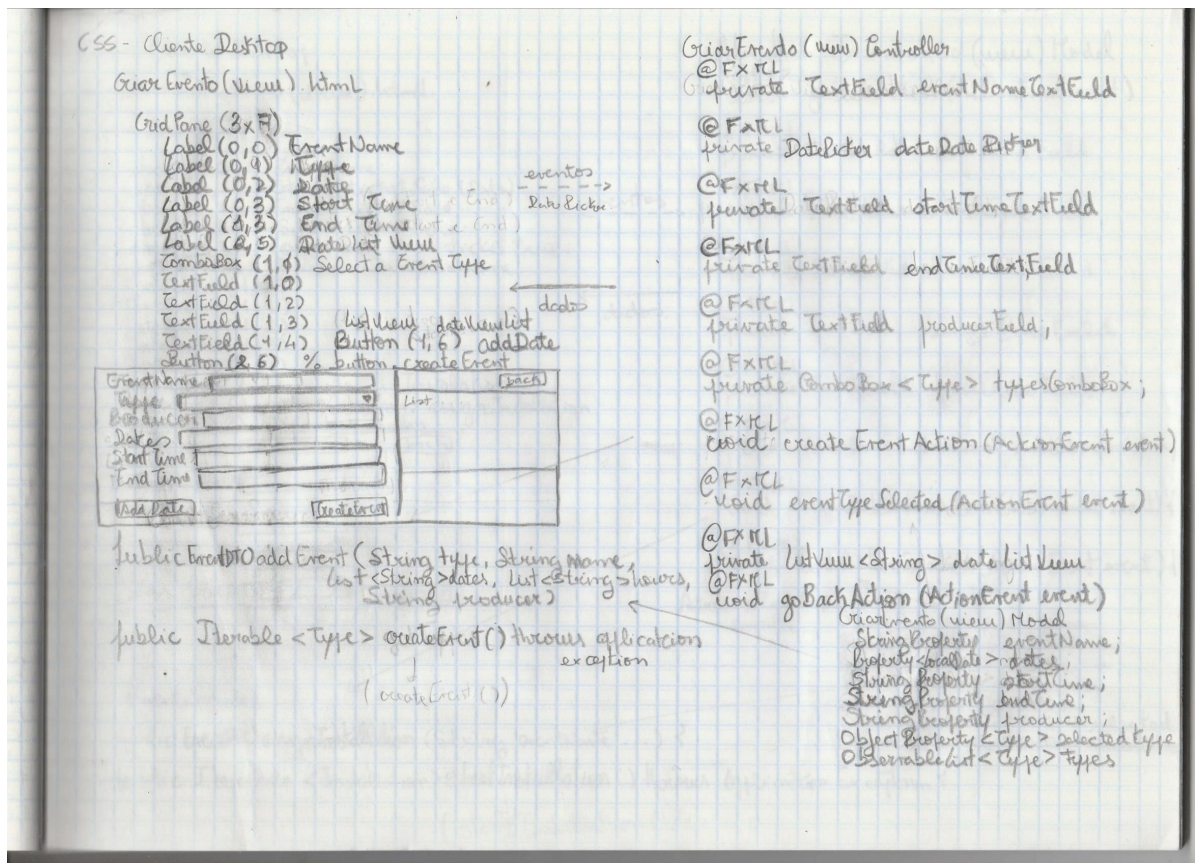 CSS - Cliente Desktop
CriarEvento (view).html
GridPane (3x7)
Label (0,0) EventName
Label (0,1) Type
Label (0,2) Date
Label (0,3) Start Time
Label (1,3) End Time
Label (2,5) Date list View
ComboBox (1,1) Select a Event Type
TextField (1,0)
TextField (1,2)
TextField (1,3) ListView dateViewList
TextField (1,4) Button (1,6) addDate
Button (2,6) % button createEvent
eventos
DatePicker
dados
EventName
Type
Producer
Dates
Start Time
End Time
Add Date
CreateEvent
back
List
public EventDTO addEvent (String type, String name,
List <String> dates, List <String> hours,
String producer)
public Iterable <Type> createEvent() throws application
exception
(createEvent())
CriarEvento (view) Controller
@FXML
private TextField eventNameTextField
@FXML
private DatePicker dateDatePicker
@FXML
private TextField startTimeTextField
@FXML
private TextField endTimeTextField
@FXML
private TextField producerField;
@FXML
private ComboBox <Type> typesComboBox;
@FXML
void createEventAction (ActionEvent event)
@FXML
void eventTypeSelected (ActionEvent event)
@FXML
private ListView <String> dateListView
@FXML
void goBackAction (ActionEvent event)
CriarEvento (view) Model
StringProperty eventName;
Property <LocalDate> dates;
StringProperty startTime;
StringProperty endTime;
StringProperty producer;
ObjectProperty <Type> selectedType
ObservableList <Type> types